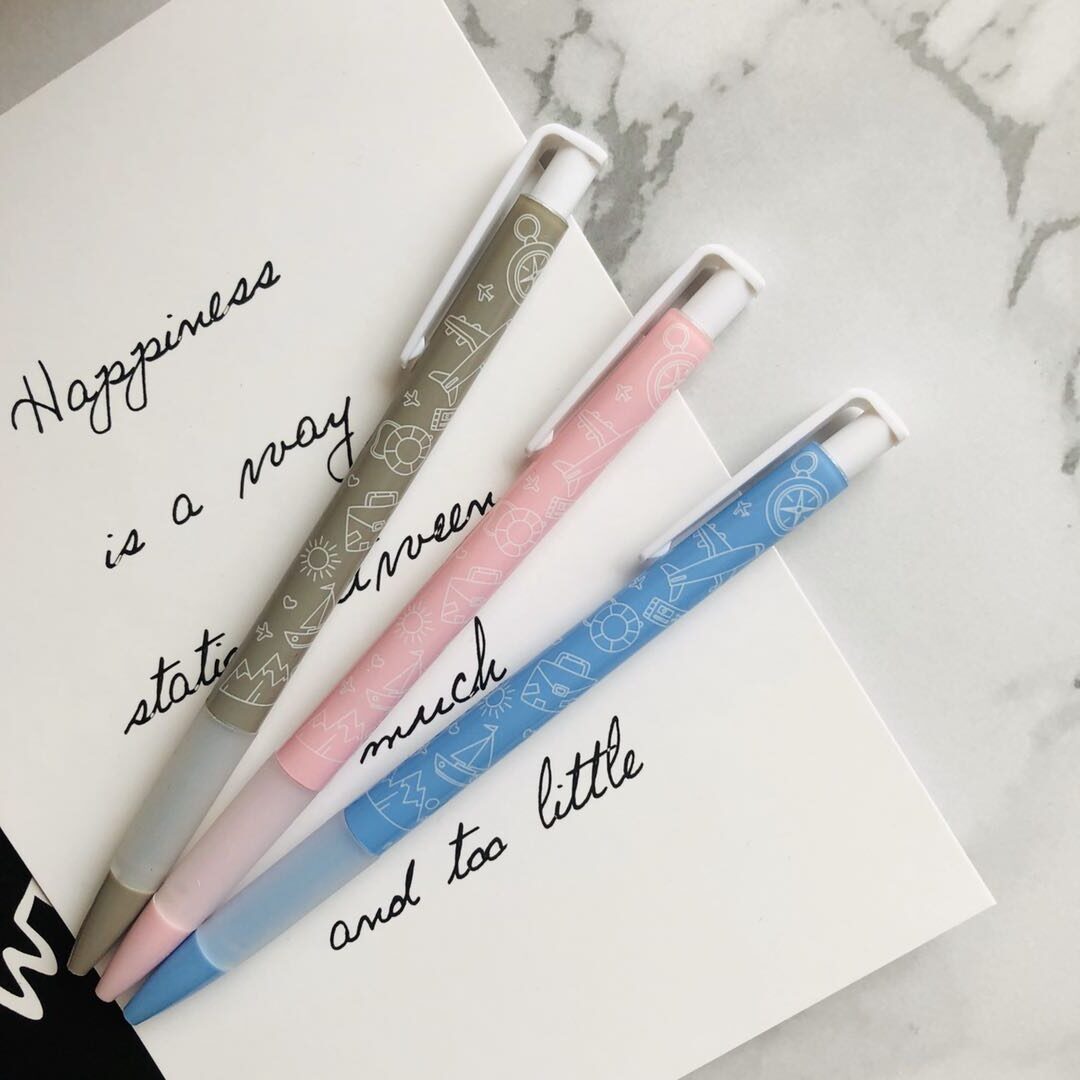 Happiness
is a way
stati ween
much
and too little